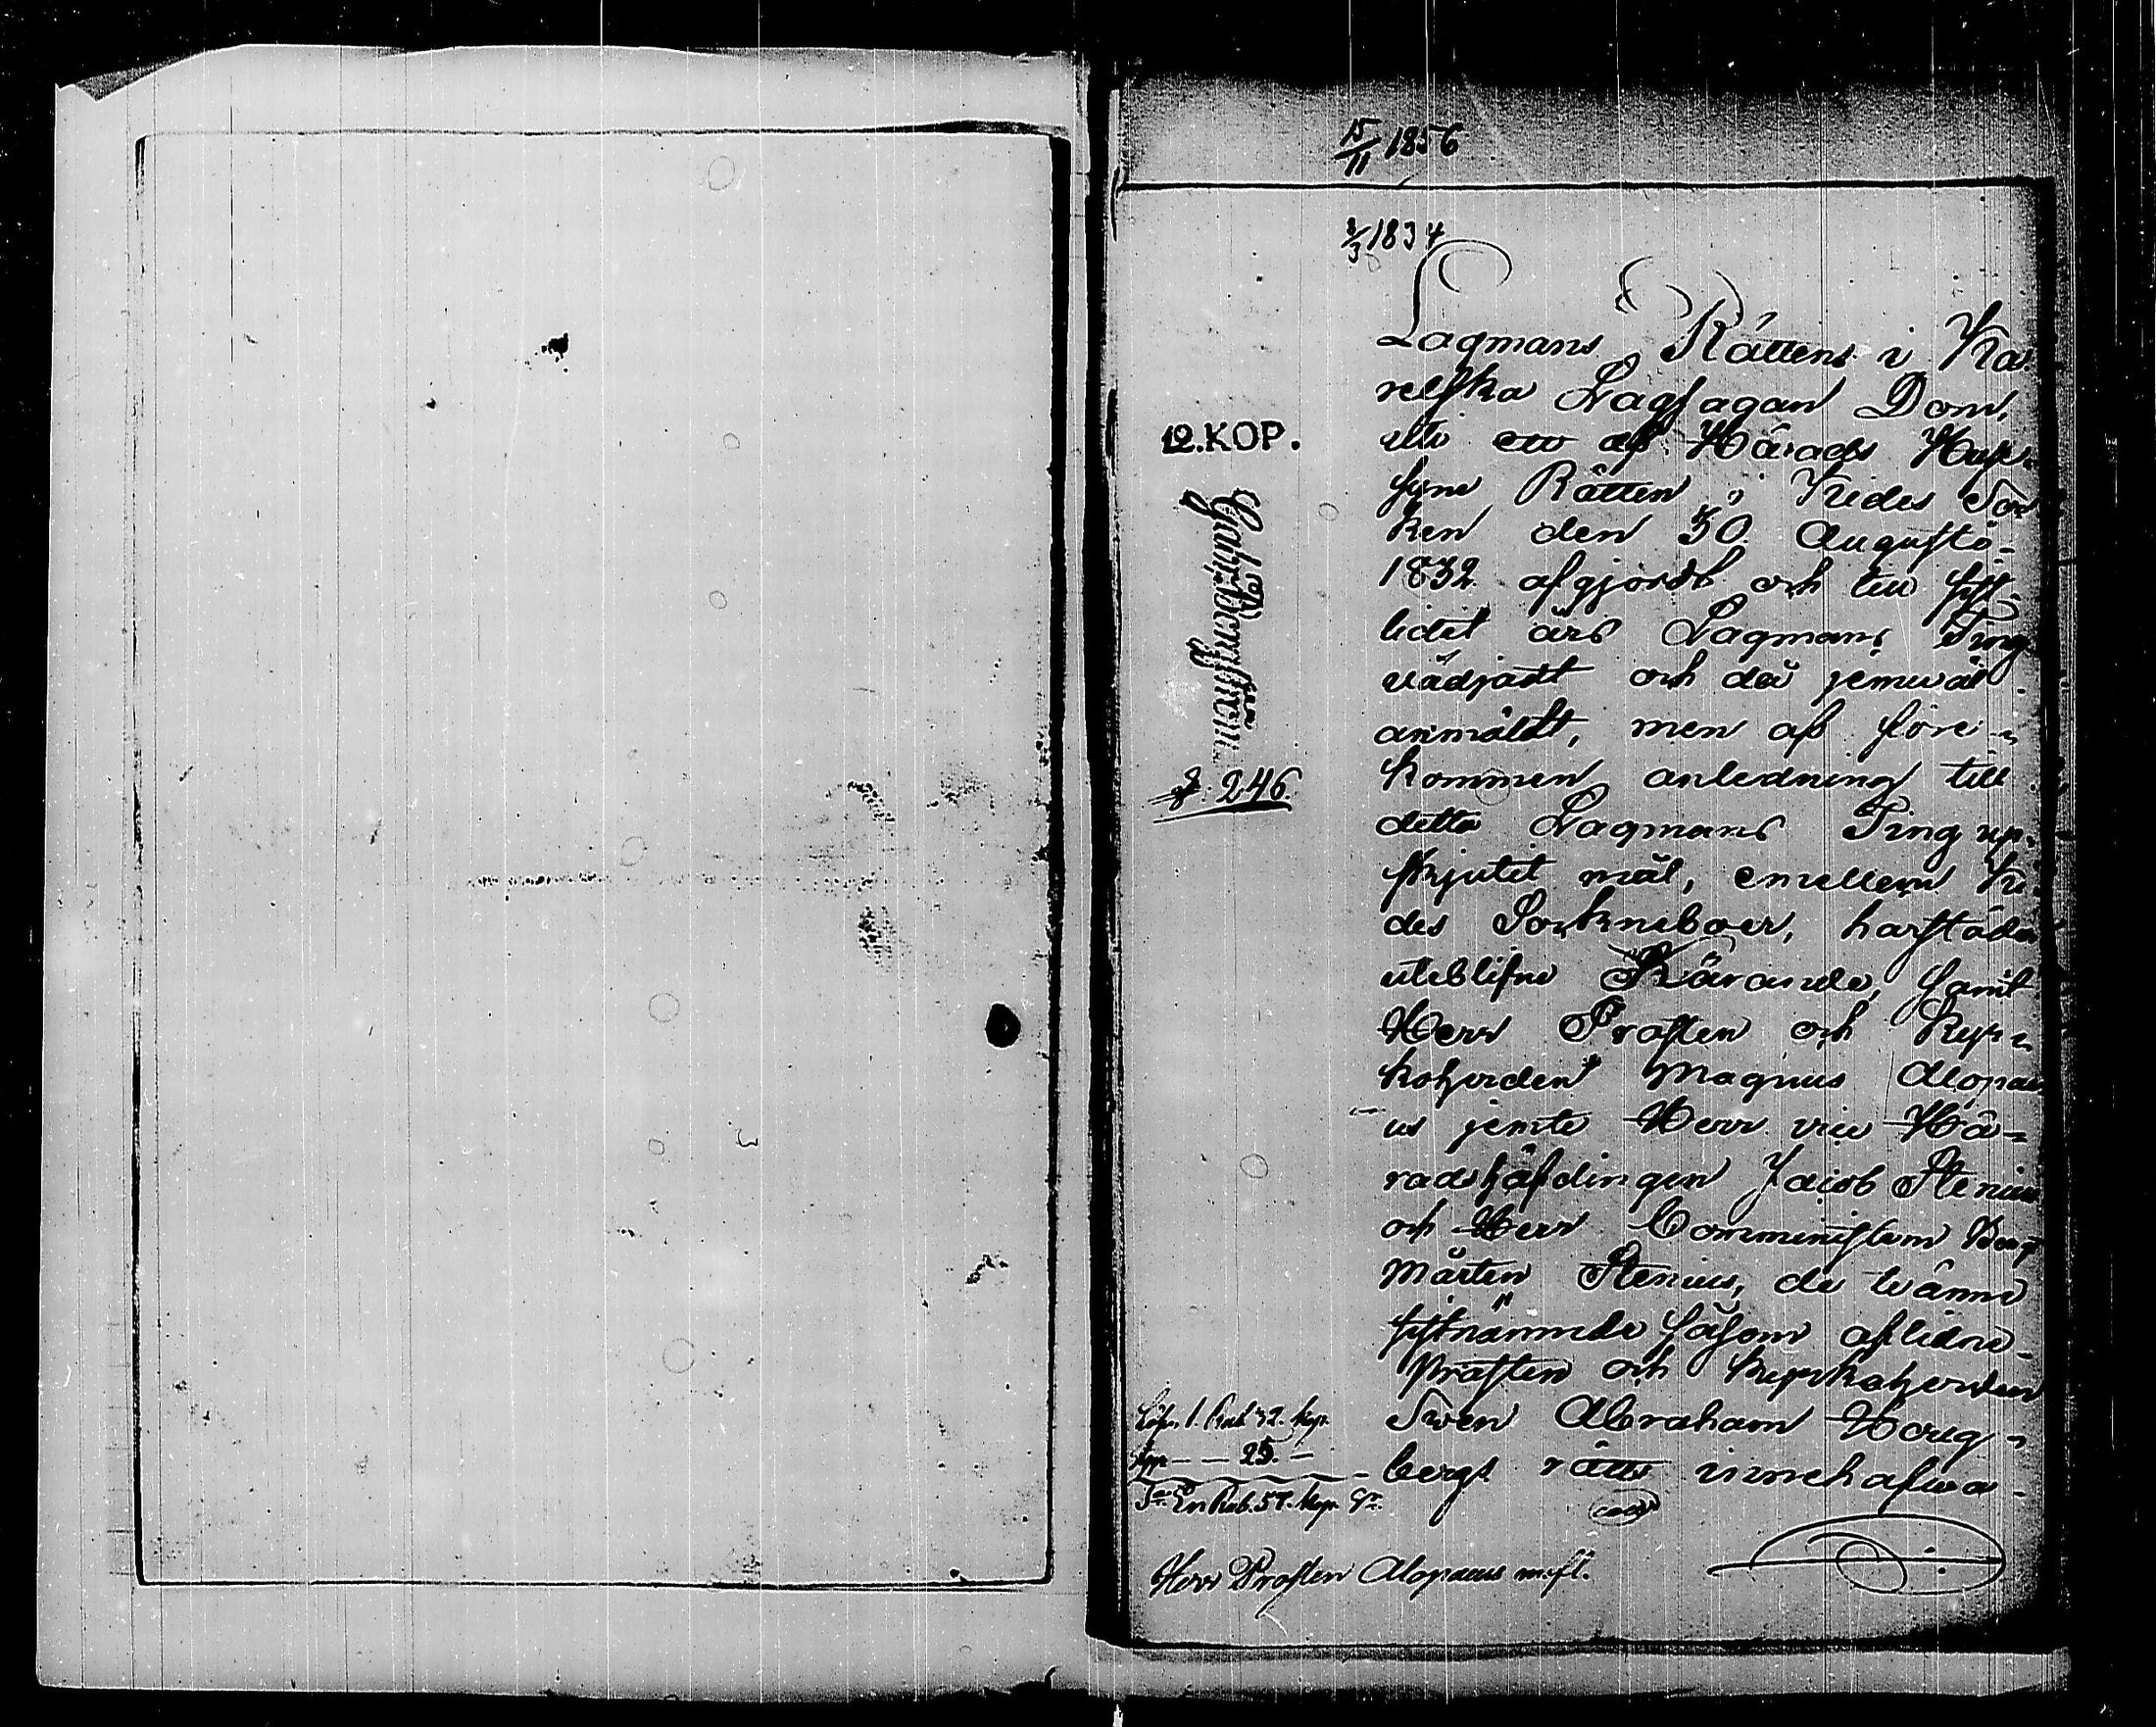 15/11 1856
3/3 1834
Lagmans Rättens i Ka-
relska Lagsagan Dom,
uti ett af Härads Huf-
syne Rätten i Kides Sor
ken den 30 Augusti
1832 afgjordt och till sist-
ledet års Lagmans Ting
vädjadt och då jemwäl
anmäldt, men af före-
kommen anledning till
detta Lagmans Ting up-
skjutit mål, emellan Ki-
des Sockneboer, harstädes
uteblifne Kärande, samt
Herr Prosten och Kyr-
koherden Magnus Alopae
us jemte Herr vice Hä-
radshöfdingen Jacob Stenius
och Herr Comministern
Mårten Stenius, de tvänne
sistnämnde såsom aflidne
Prosten och Kyrkoherden
Swen Abraham Houg-
bergs rätts innehafwa-
12. KOP.
N: 246.
Lösn. 1. Rub 32. kop.
25.
S:a En Rub. 57. kop. Sr.
Herr Prosten Alopaeus